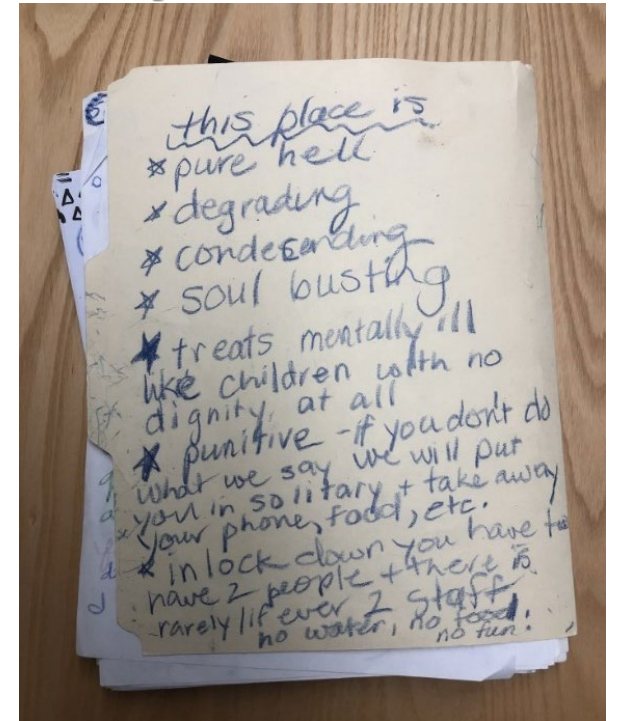 this place is
* pure hell
* degrading
* condesending
* soul busting
* treats mentally ill
like children with no
dignity at all
* punitive - if you don't do
what we say we will put
you in solitary + take away
your phone, food, etc.
* in lock down you have to
have 2 people + there is
rarely/if ever 2 staff,
no water, no food,
no fun.